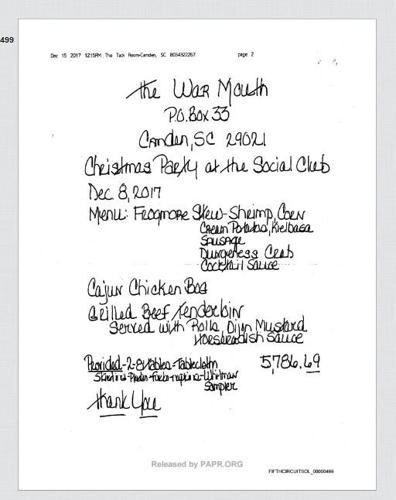 499
Dec 15 2017 12:15PM The Tack Room-Camden, SC 8034322267 page 2
the War Mouth
P.O. Box 33
Camden, SC 29021
Christmas Party at the Social Club
Dec 8, 2017
Menu: Frogmore Stew-Shrimp, Corn
Cream Potatoes, Kielbasa
Sausage
Dungeness Crab
Cocktail Sauce
Cajun Chicken Bog
Grilled Beef Tenderloin
Served with Rolls, Dijn Mustard
Horseradish Sauce
Provided-2-8' tables-Tablecloth 5,786.69
Plates-Forks-napkins-Whitman
Sampler
thank You
Released by PAPR.ORG
FIFTHCIRCUITSOL_00000499